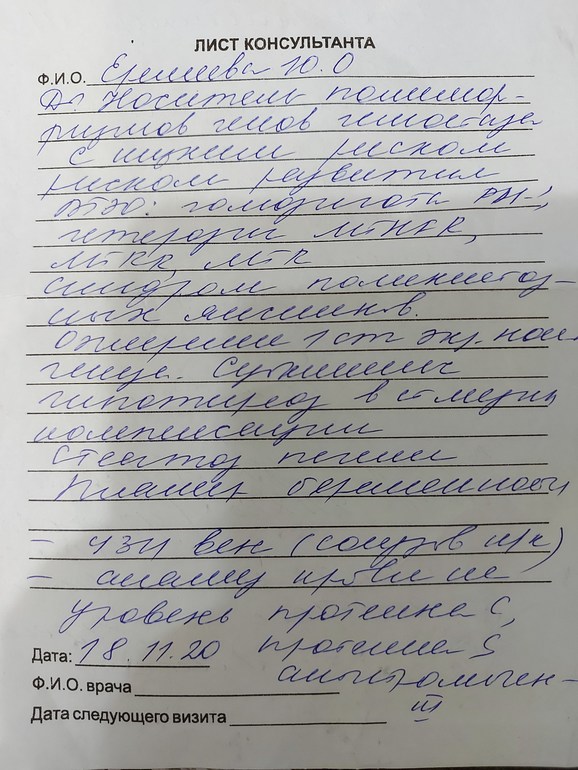 ЛИСТ КОНСУЛЬТАНТА
Ф.И.О. Ю.О
Ds Носитель полимор-
физмов генов гемостаза
с низким риском
риском развития
ВТЭО: гомозигота PAI-1,
гетерозиг MTHFR,
MTRR, MTR
Синдром поликистоз-
ных яичников.
Ожирение 1 ст экз. кон
генеза. Субклинич
гипотиреоз в ст медик
компенсации
Стеатоз печени
Планир беременность
- УЗИ вен (сосудов н/к)
- анализ крови на
уровень протеина С,
протеина S
антитромбин-
III
Дата: 18.11.20
Ф.И.О. врача
Дата следующего визита